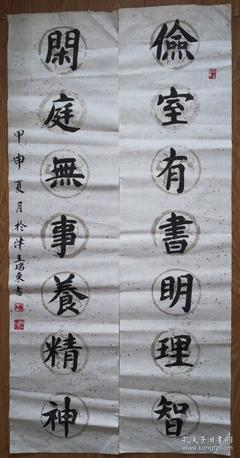 儉室有書明理智
閑庭無事養精神
甲申夏月於津王瑞東書
孔夫子旧书网